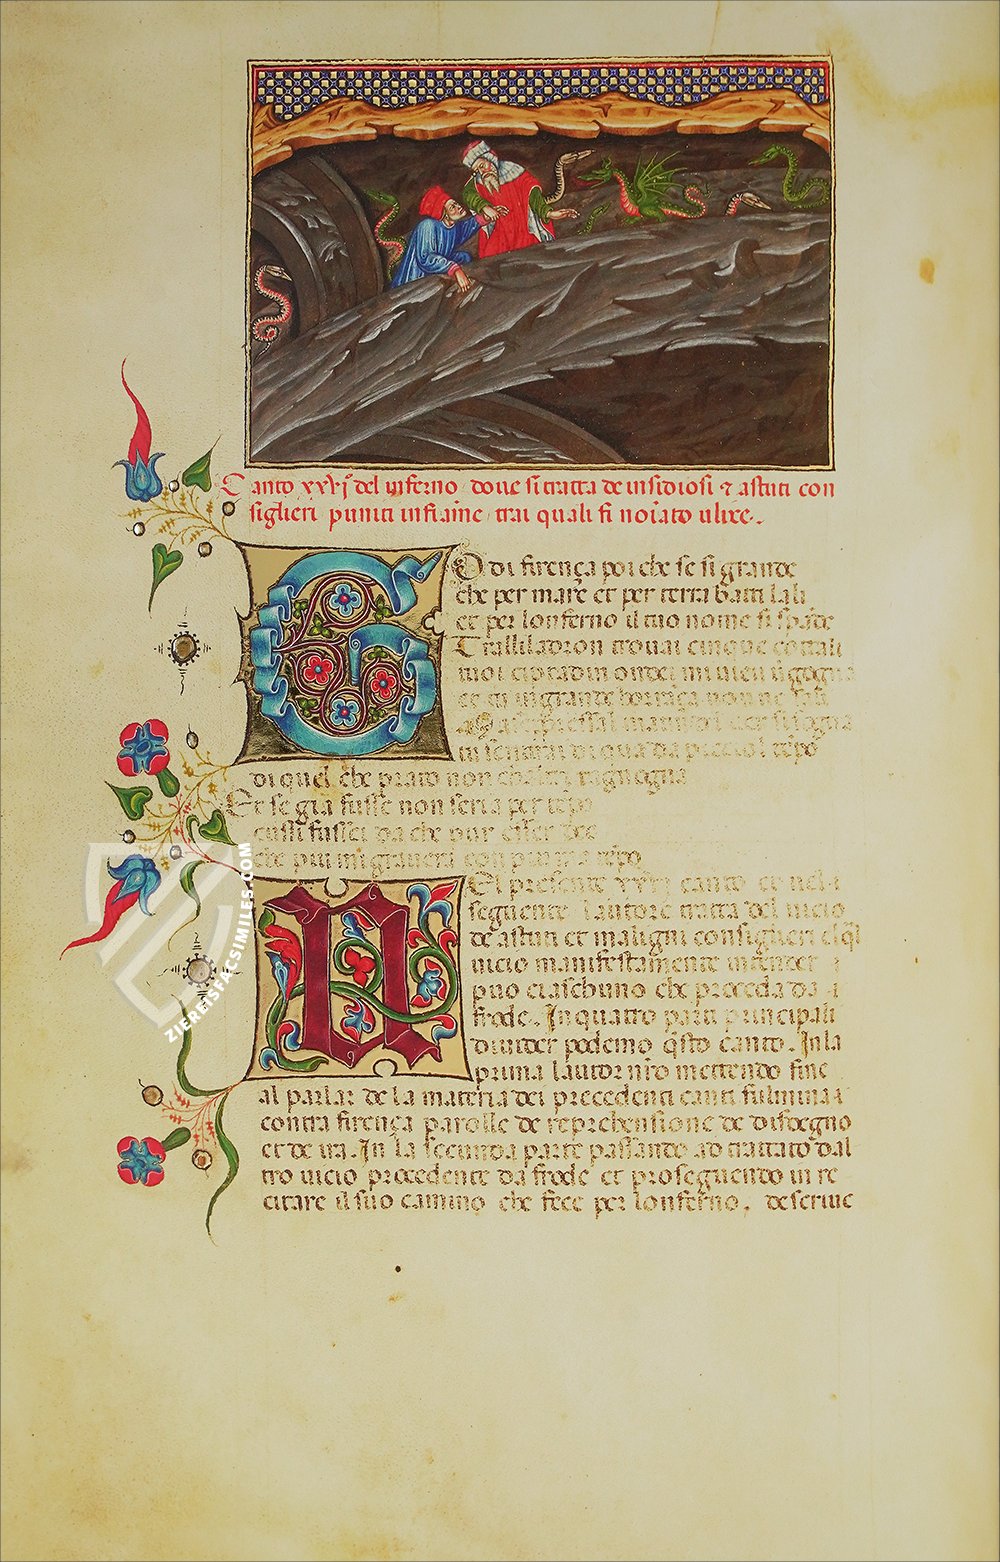 Canto xxvjº del inferno doue si tratta de insidiosi ⁊ astuti con
siglieri puniti infiaīne trai quali fi noīato ulixe.
GOdi firença poi che se si grande
che per mare et per terra batti lali
et per lonferno il tuo nome si spāde
Tralliladron trouai cinque cottali
tuoi
et tu in grande non ne
di qua da picciol tēpo
di quel che prato non chaltrj ragnogna
Et se gia fusse non seria per tēpo
cussi fussei da che pur esser dee
che piu mi grauera con piu ma tēpo
NEl presente xxvj canto et nel
seguente lautore tratta del uicio
de astuti et maligni consiglieri el q̄l
uicio manifestamente intender
puo ciaschuno che proceda da
frode. In quatro parti principali
diuider podemo q̄sto canto. In la
prima lautor nr̄o mettendo fine
al parlar de la materia dei precedenti canti fulmina
contra firença parolle de reprehensione de disdegno
et de ira. In la secunda parte passando ad trattato dal
tro uicio procedente da frode et proseguendo in re
citare il suo camino che fece per lonferno, descriue
ZIEREISFACSIMILES.COM